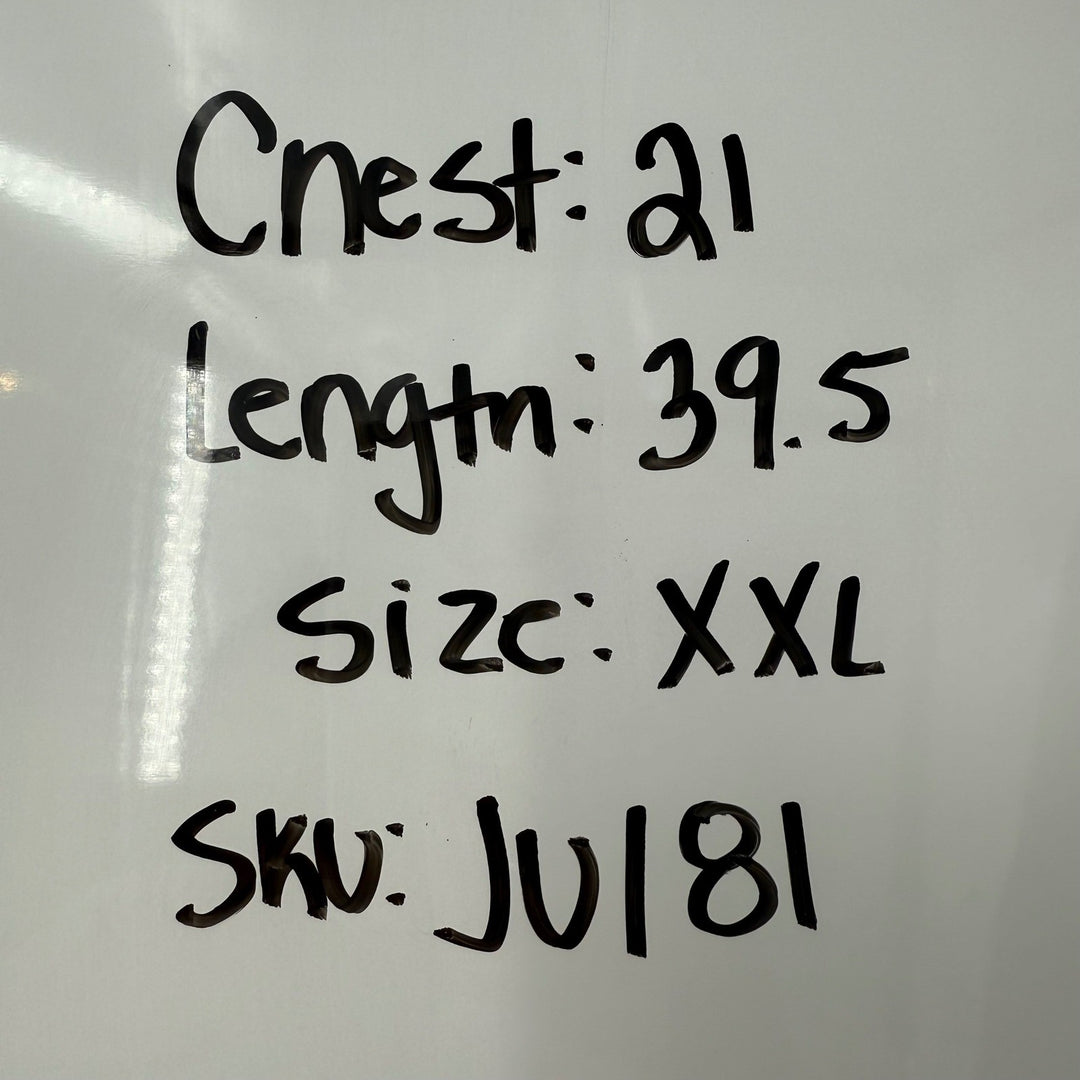 Chest: 21
Length: 39.5
Size: XXL
SKU: JU181